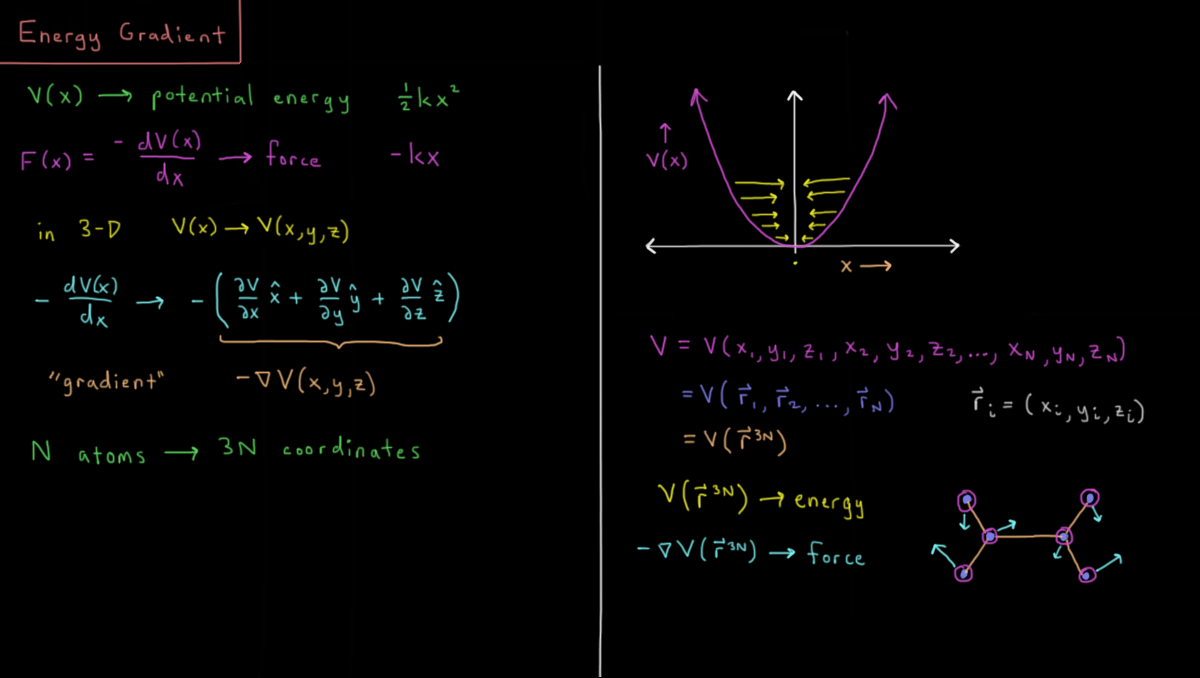 Energy Gradient
V(x) → potential energy ½kx²
F(x) = - dV(x)/dx → force -kx
in 3-D V(x) → V(x,y,z)
- dV(x)/dx → - (∂V/∂x x̂ + ∂V/∂y ŷ + ∂V/∂z ẑ)
"gradient" -∇V(x,y,z)
N atoms → 3N coordinates
↑
V(x)
x →
V = V(x₁,y₁,z₁,x₂,y₂,z₂,...,x_N,y_N,z_N)
= V(r⃗₁,r⃗₂,...,r⃗_N) r⃗ᵢ = (xᵢ,yᵢ,zᵢ)
= V(r⃗³ᴺ)
V(r⃗³ᴺ) → energy
-∇V(r⃗³ᴺ) → force